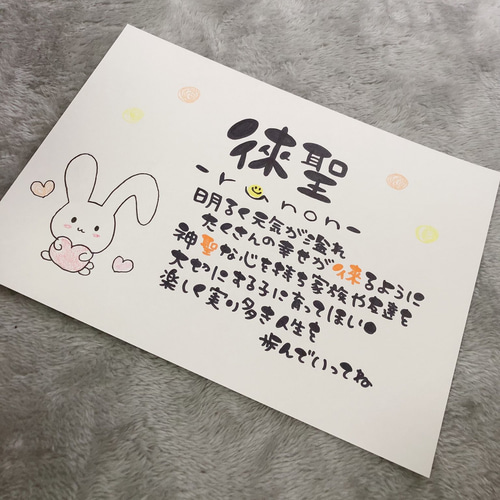 徠聖
-ranon-
明るく元気が溢れ
たくさんの幸せが徠るように
神聖な心を持ち家族や友達を
大切にする子に育ってほしい●
楽しく実り多き人生を
歩んでいってね